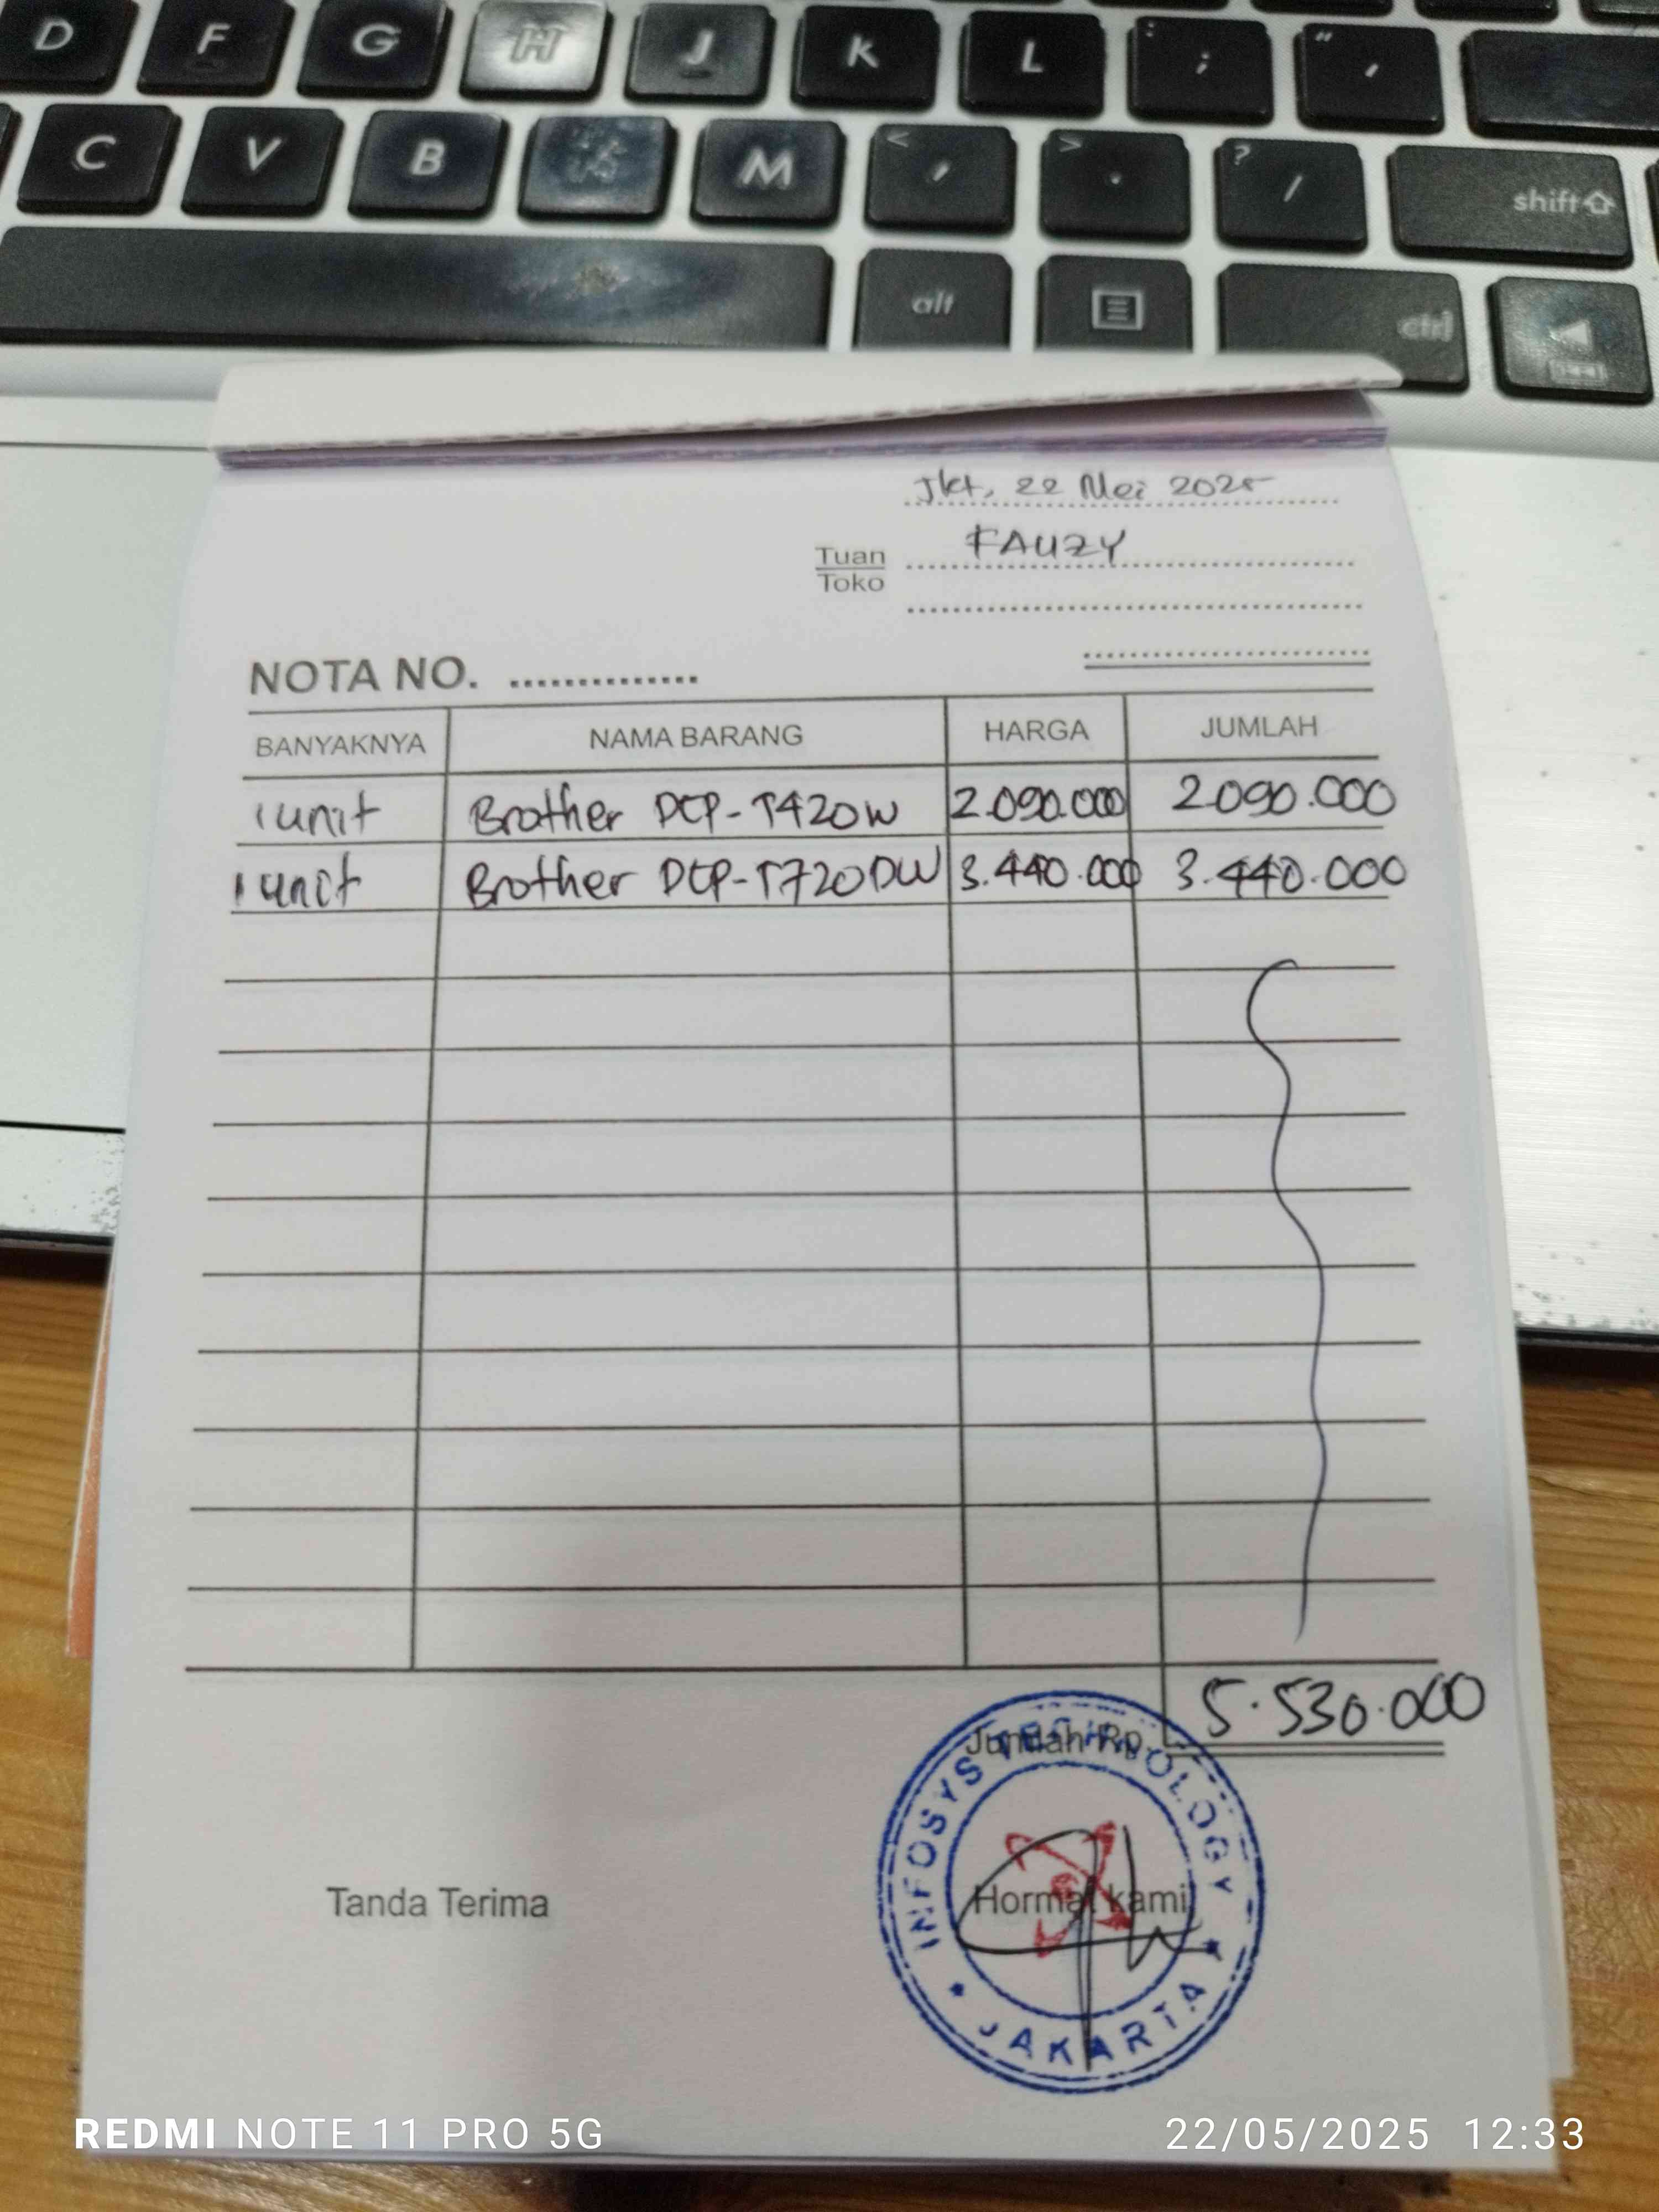 D F G H J K L : ; " '
C V B M < , > . ? / shift
alt ctrl
Jkt, 22 Mei 2025
Tuan FAUZY
Toko
NOTA NO. ..............
BANYAKNYA NAMA BARANG HARGA JUMLAH
1 unit Brother DCP-T420W 2.090.000 2.090.000
1 unit Brother DCP-T720DW 3.440.000 3.440.000
Jumlah Rp. 5.530.000
Tanda Terima Hormat kami
INFOSYS TECHNOLOGY
JAKARTA
REDMI NOTE 11 PRO 5G 22/05/2025 12:33